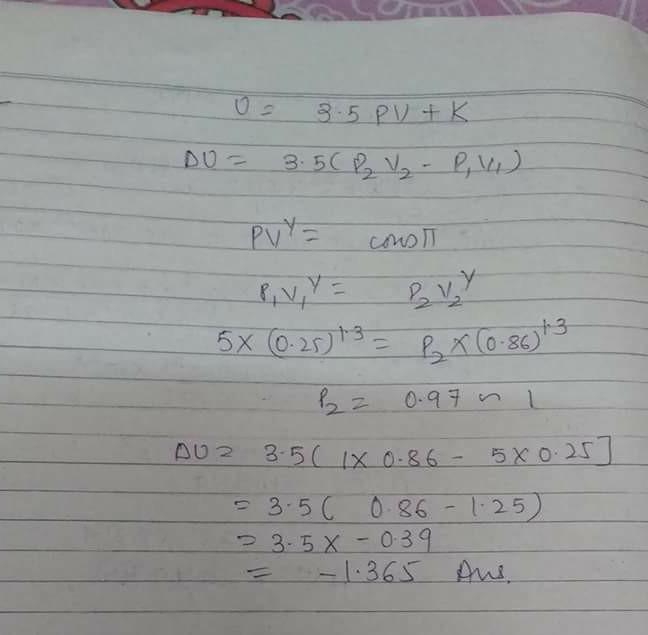 U = 3.5 PV + K
ΔU = 3.5( P₂ V₂ - P₁ V₁)
PV^γ = const
P₁V₁^γ = P₂ V₂^γ
5 × (0.25)^1.3 = P₂ × (0.86)^1.3
P₂ = 0.97 ~ 1
ΔU = 3.5( 1 × 0.86 - 5 × 0.25]
= 3.5( 0.86 - 1.25)
= 3.5 × -0.39
= -1.365 Ans.